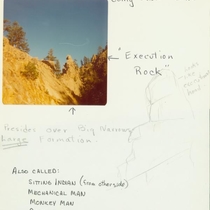 "Execution
Rock"
Presides over Big Narrows
Large Formation.
ALSO CALLED:
SITTING INDIAN (from other side)
MECHANICAL MAN
MONKEY MAN